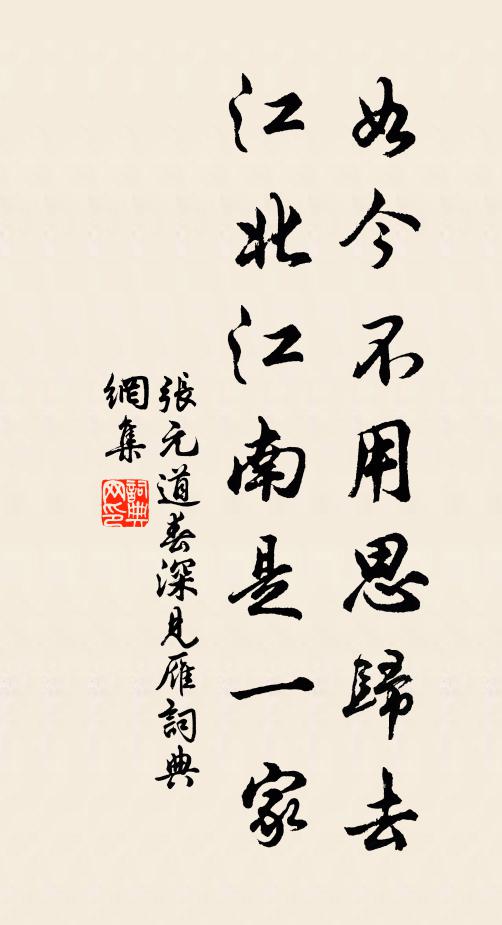 如今不用思歸去
江北江南是一家
張元道春深見雁詞典
網集
詞典
网印